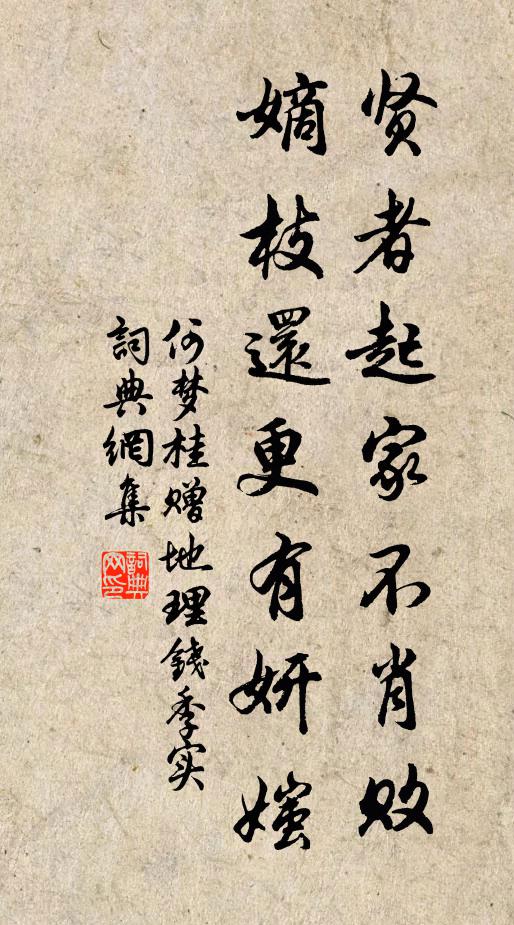 贤者起家不肖败
嫡枝還更有妍媸
何梦桂赠地理錢季实
詞典網集
詞典
网印